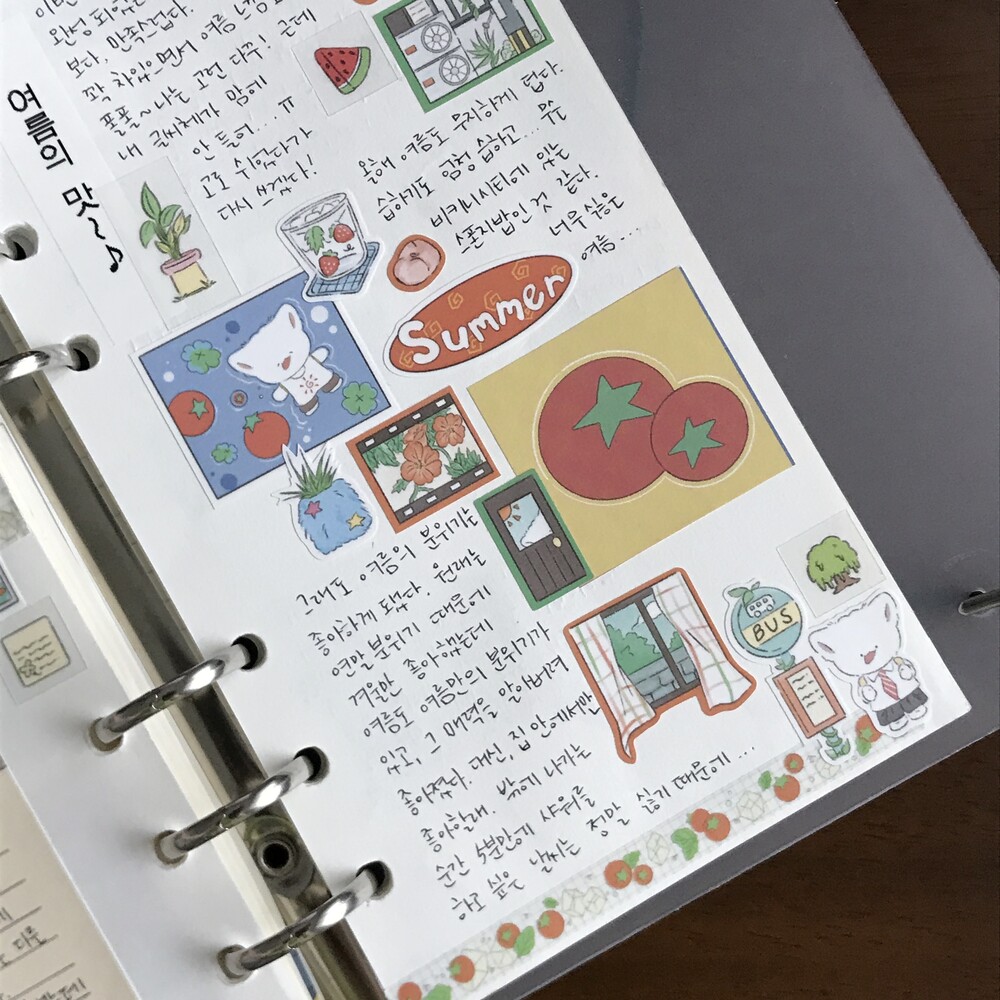 여름의 맛~♪
완성 되었
보다, 만족스럽다.
꽉 차있으면서 여름 느낌
폴폴~ 나는 그런 다꾸! 근데
내 글씨체가 맘에
안 들어... ㅠ
고로 쉬었다가
다시 쓰겠다!
올해 여름도 무지하게 덥다.
습하기도 엄청 습하고... ㅠㅠ
비키니시티에 있는
스폰지밥인 것 같다.
너무 싫은
여름...
Summer
그래도 여름의 분위기는
좋아하게 되었다. 원래는
연말 분위기 때문에
겨울만 좋아했는데
여름도 여름만의 분위기가
있고, 그 매력을 알아버려
좋아졌다. 대신, 집 안에서만
좋아할래. 밖에 나가는
순간 5분만에 샤워를
하고 싶은 날씨는 정말 싫기 때문에...
BUS